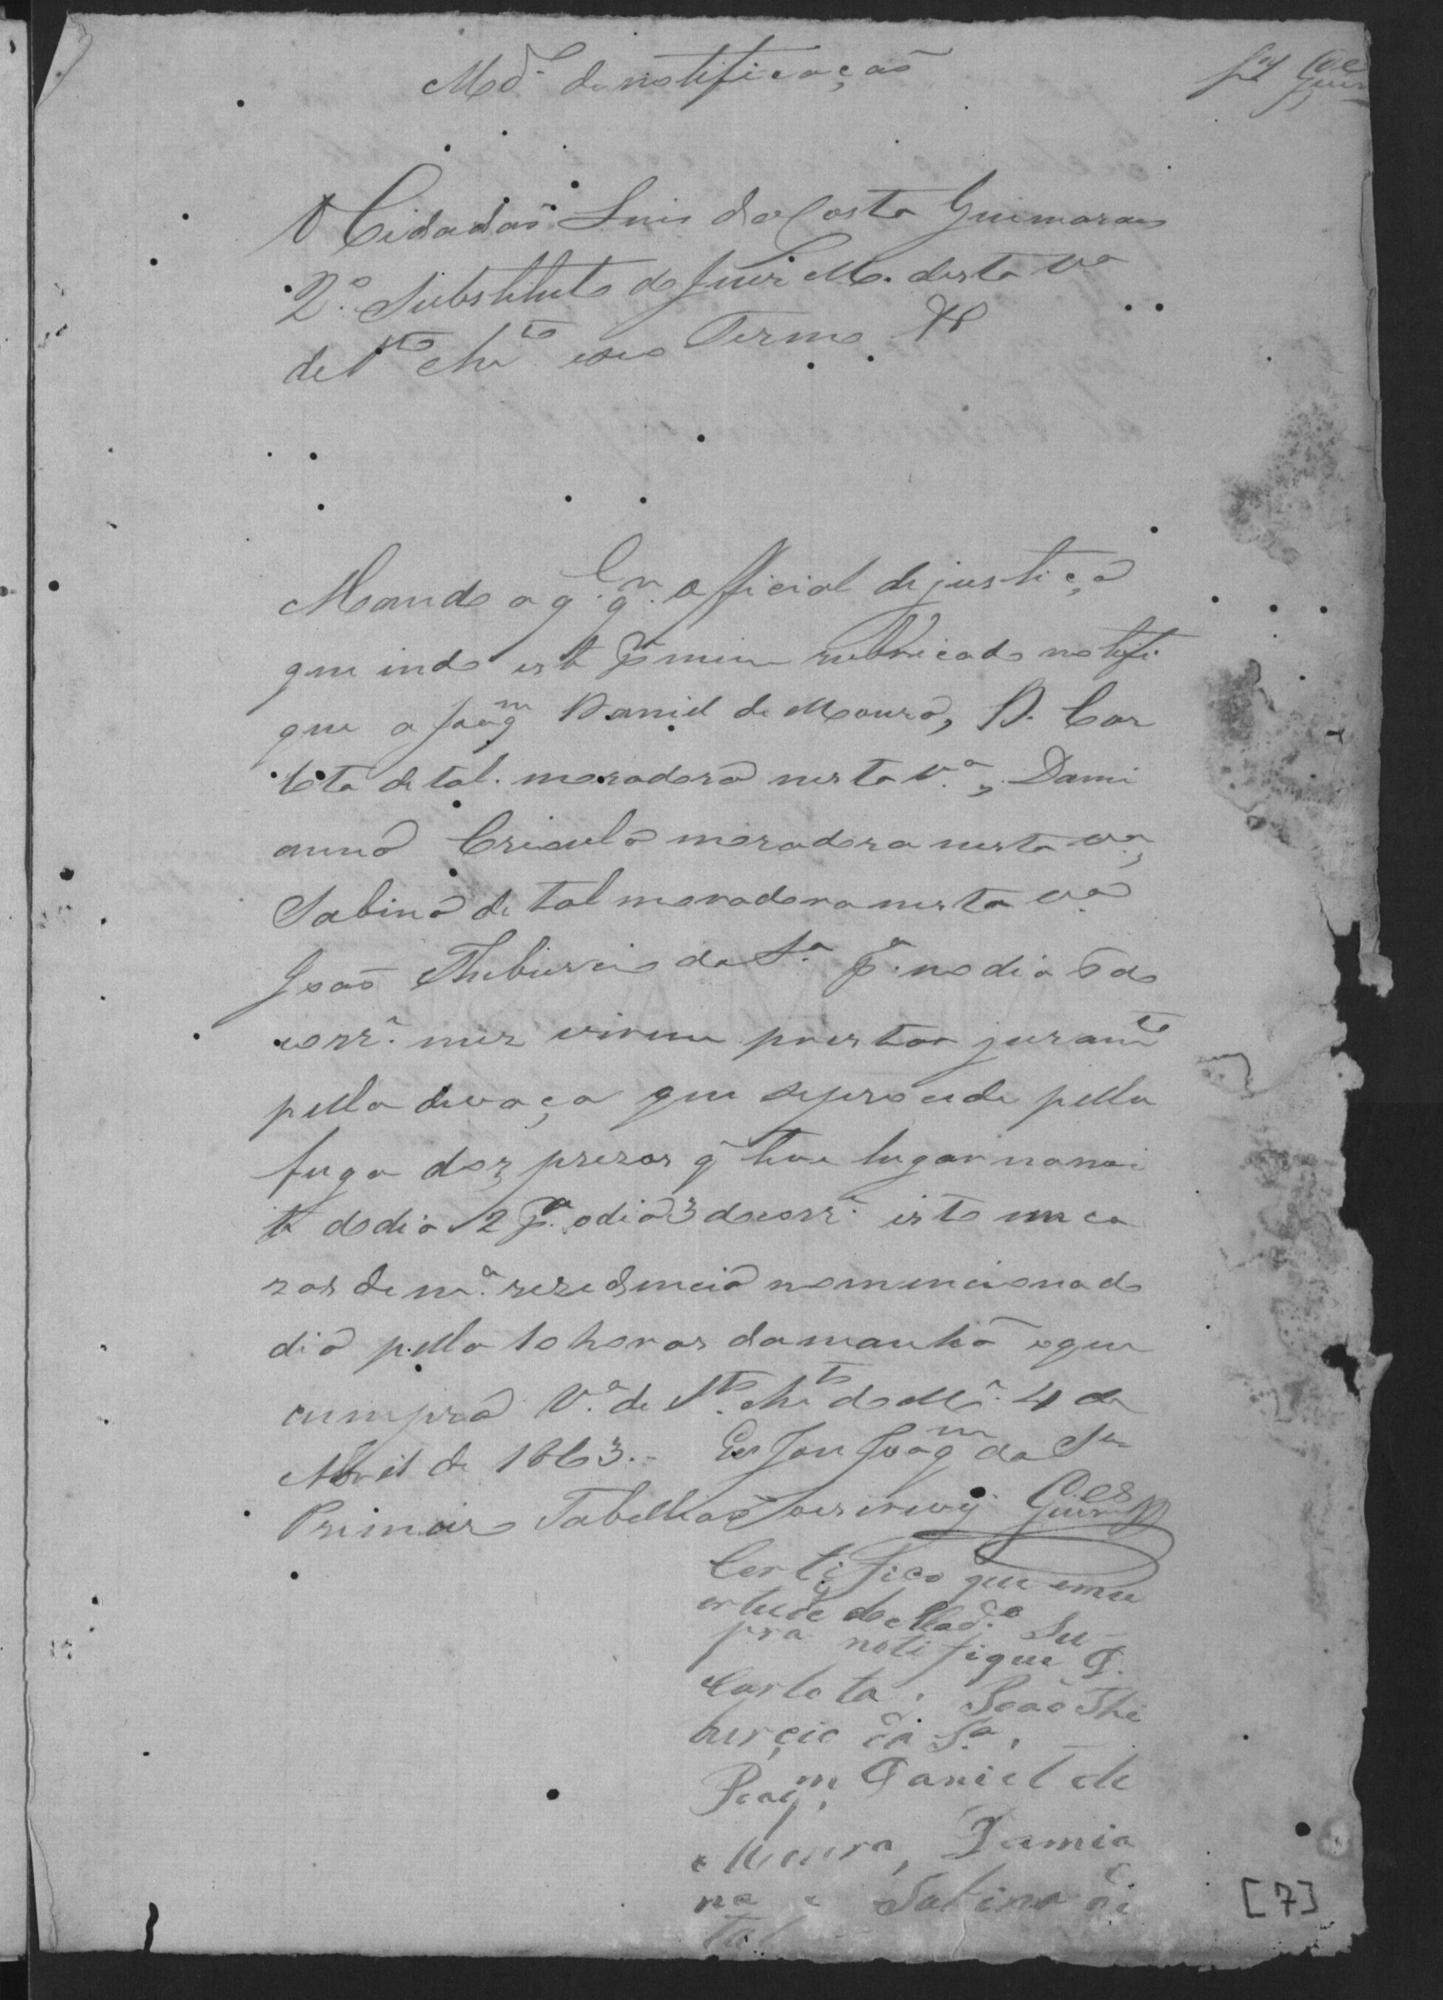 Md.º de notificaçaõ
O Cidadaõ Luis da Costa Guimaraes
2º. Substituto do Juis M. desta Vª
de Sto Chr.to e seo Termo &
Mando a q.q.r official de justiça
que indo este pr mim rubricado notifi
que a Joaqm Daniel de Moura, D. Car
lota de tal. moradora nesta V.ª, Dami
anna Crioula moradora nesta vª,
Sabina de tal moradora nesta vª
Joaõ Thiburcio da S.ª p.ª no dia 6 do
corr.e mez virem prestar juramto
pella devaça que se procede pella
fuga dos prezos q̃ teve lugar na noi
te do dia 2 p.ª o dia 3 do corr.e isto na ca
zas de m.ª rezidencia no mencionado
dia pella 10 horas da manhã o que
cumpra V.ª de Sto. Chr.to do Mi. 4 de
Abril de 1863.- Eu Joaqm da Sa
Primeiro Tabelliaõ o escrevy
Certifico que em vi
rtude do Mad.º Su-
pra notifique D.
Carlota, Joaõ Thi
burcio da Sª,
Joaqm. Daniel de
Moura, Damia
na e Sabina de
tal
[7]